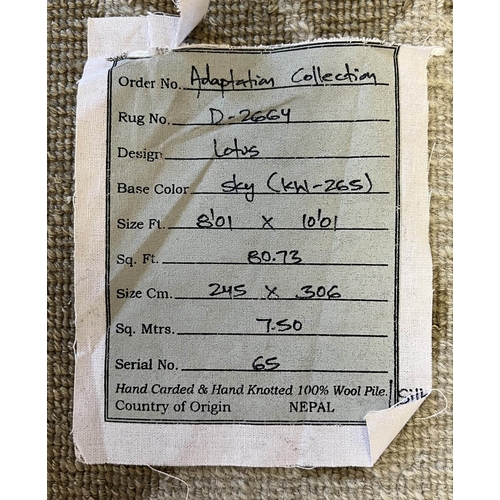 Order No. Adaptation Collection
Rug No. D-2664
Design Lotus
Base Color Sky (KW-265)
Size Ft. 8'01 X 10'01
Sq. Ft. 80.73
Size Cm. 245 X 306
Sq. Mtrs. 7.50
Serial No. 65
Hand Carded & Hand Knotted 100% Wool Pile.
Country of Origin NEPAL